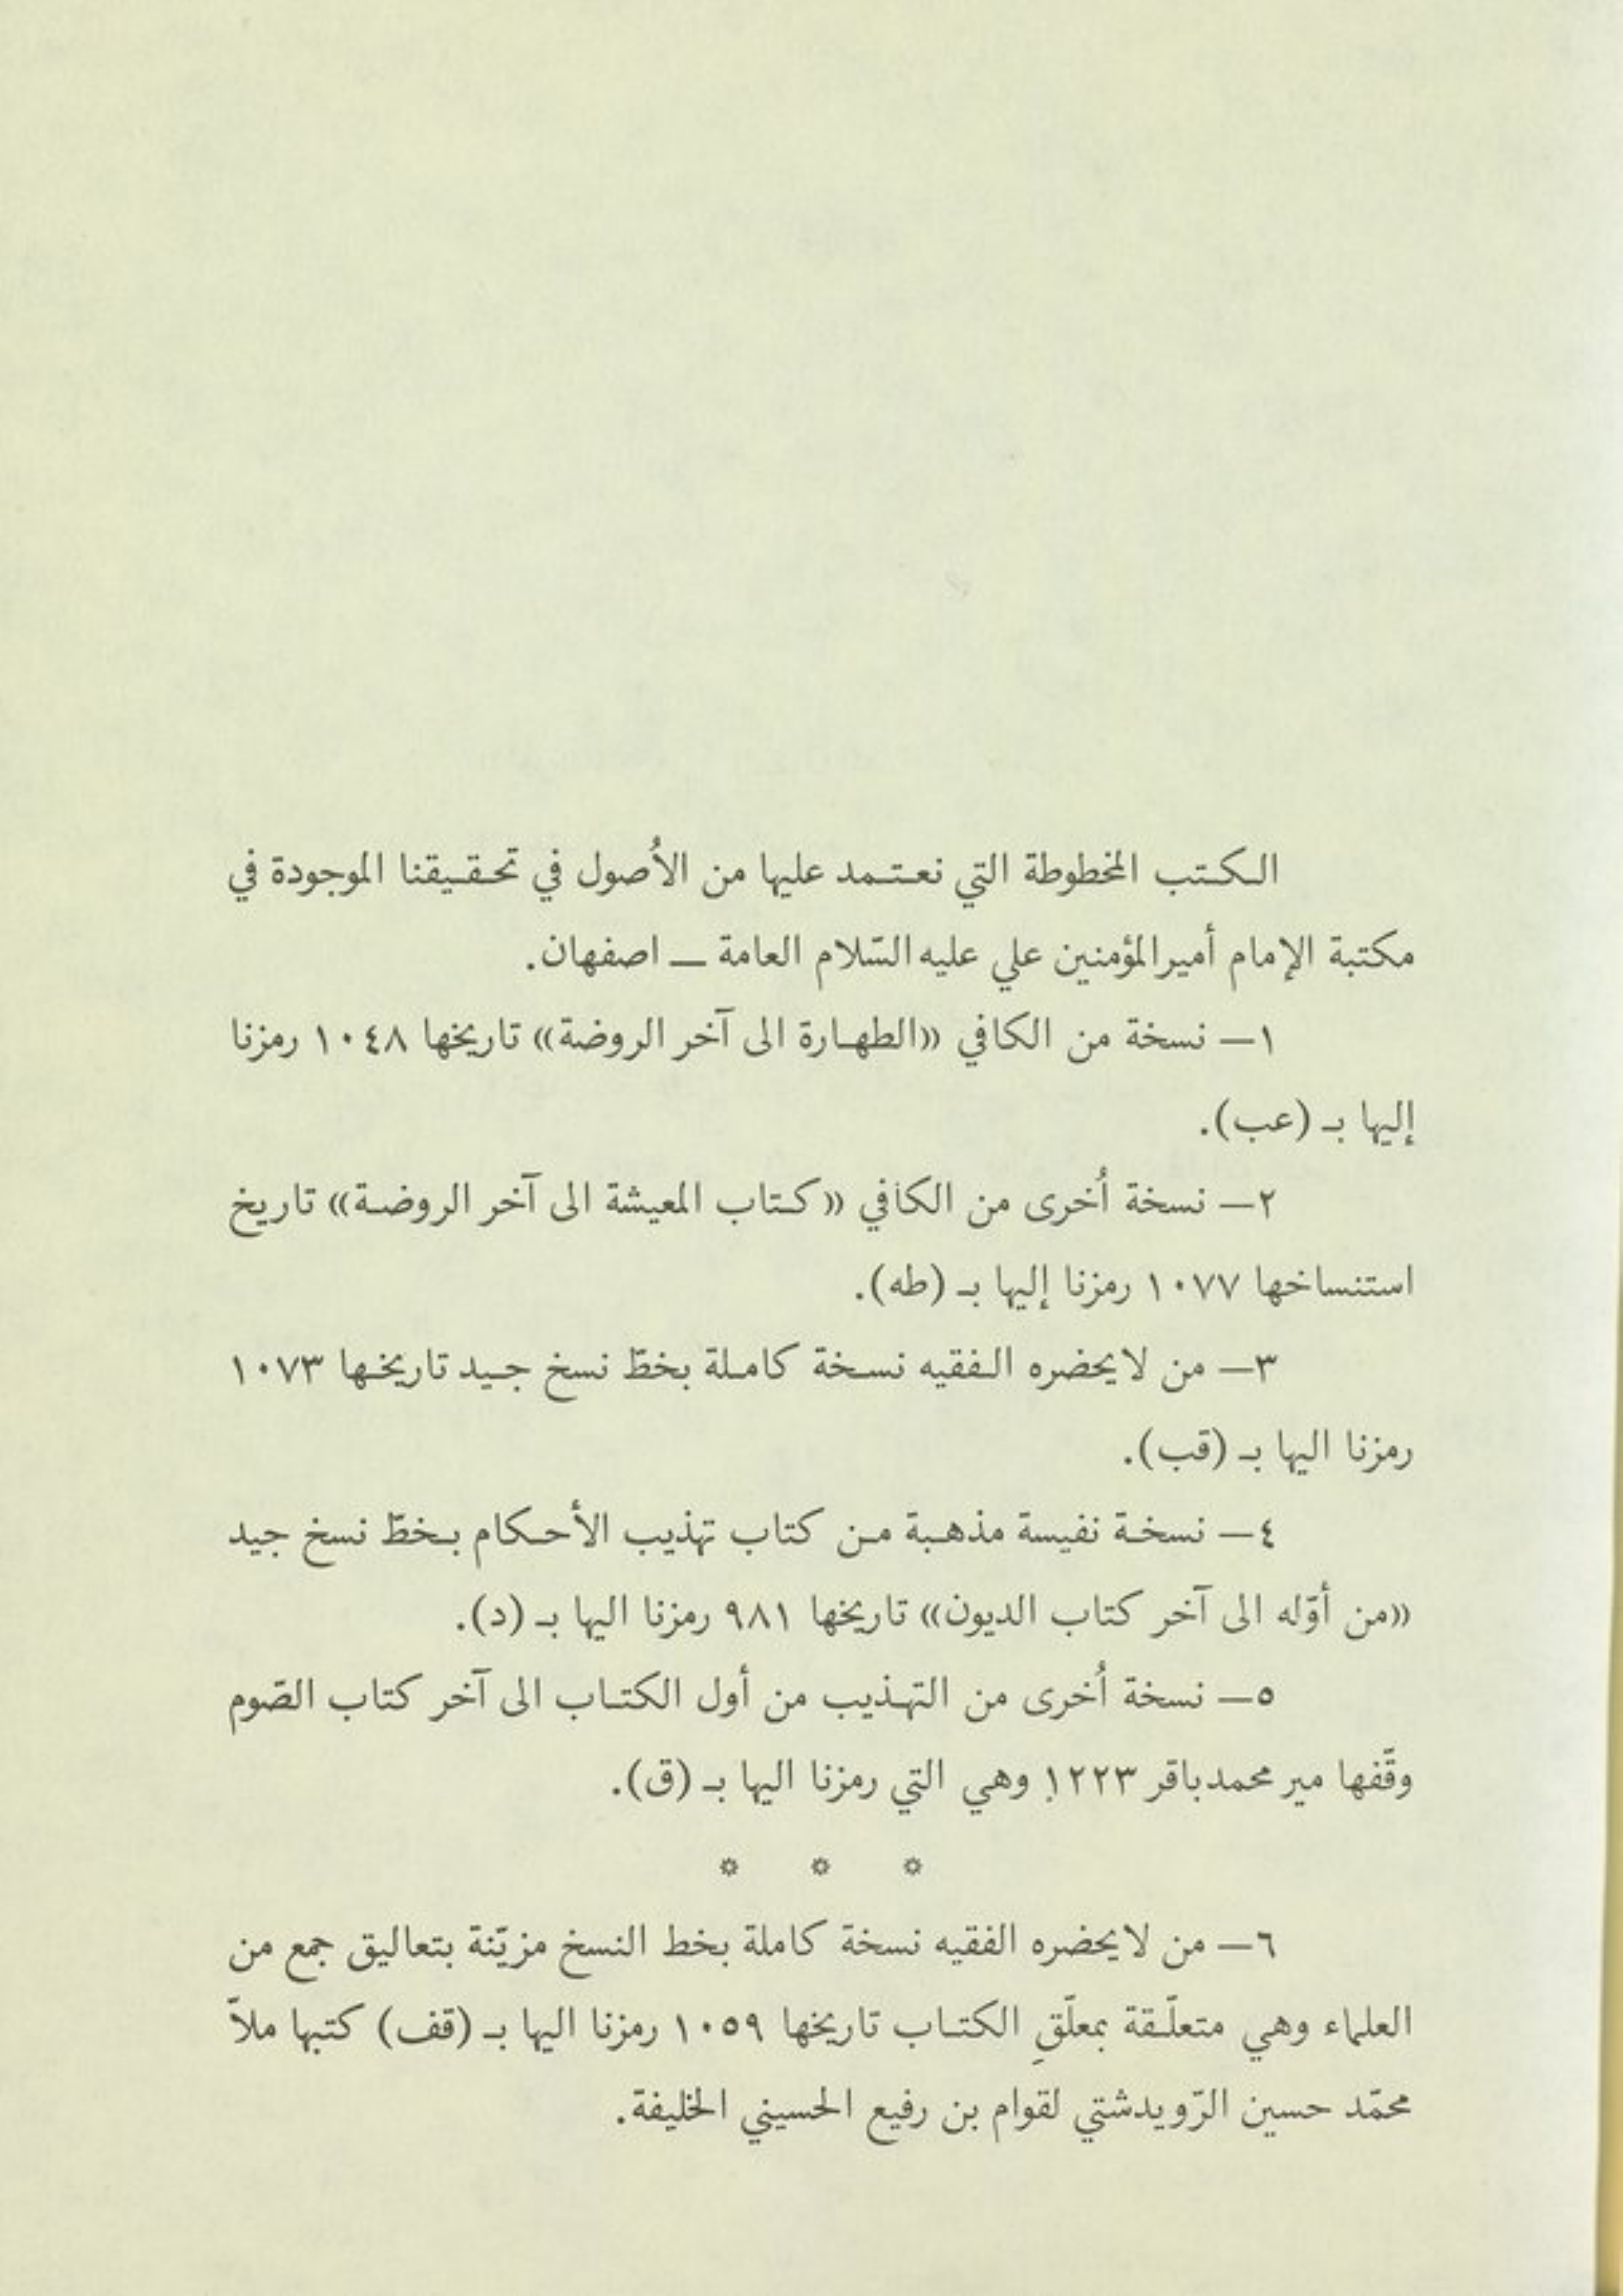 الكتب المخطوطة التي نعتمد عليها من الأُصول في تحقيقنا الموجودة في
مكتبة الإمام أميرالمؤمنين علي عليه السّلام العامة — اصفهان.
١— نسخة من الكافي «الطهارة الى آخر الروضة» تاريخها ١٠٤٨ رمزنا
إليها بـ (عب).
٢— نسخة أُخرى من الكافي «كتاب المعيشة الى آخر الروضة» تاريخ
استنساخها ١٠٧٧ رمزنا إليها بـ (طه).
٣— من لايحضره الفقيه نسخة كاملة بخطّ نسخ جيد تاريخها ١٠٧٣
رمزنا اليها بـ (قب).
٤— نسخة نفيسة مذهبة من كتاب تهذيب الأحكام بخطّ نسخ جيد
«من أوّله الى آخر كتاب الديون» تاريخها ٩٨١ رمزنا اليها بـ (د).
٥— نسخة أُخرى من التهذيب من أول الكتاب الى آخر كتاب الصّوم
وقّفها مير محمدباقر ١٢٢٣ وهي التي رمزنا اليها بـ (ق).
* * *
٦— من لايحضره الفقيه نسخة كاملة بخط النسخ مزيّنة بتعاليق جمع من
العلماء وهي متعلّقة بمعلّقِ الكتاب تاريخها ١٠٥٩ رمزنا اليها بـ (قف) كتبها ملاّ
محمّد حسين الرّويدشتي لقوام بن رفيع الحسيني الخليفة.